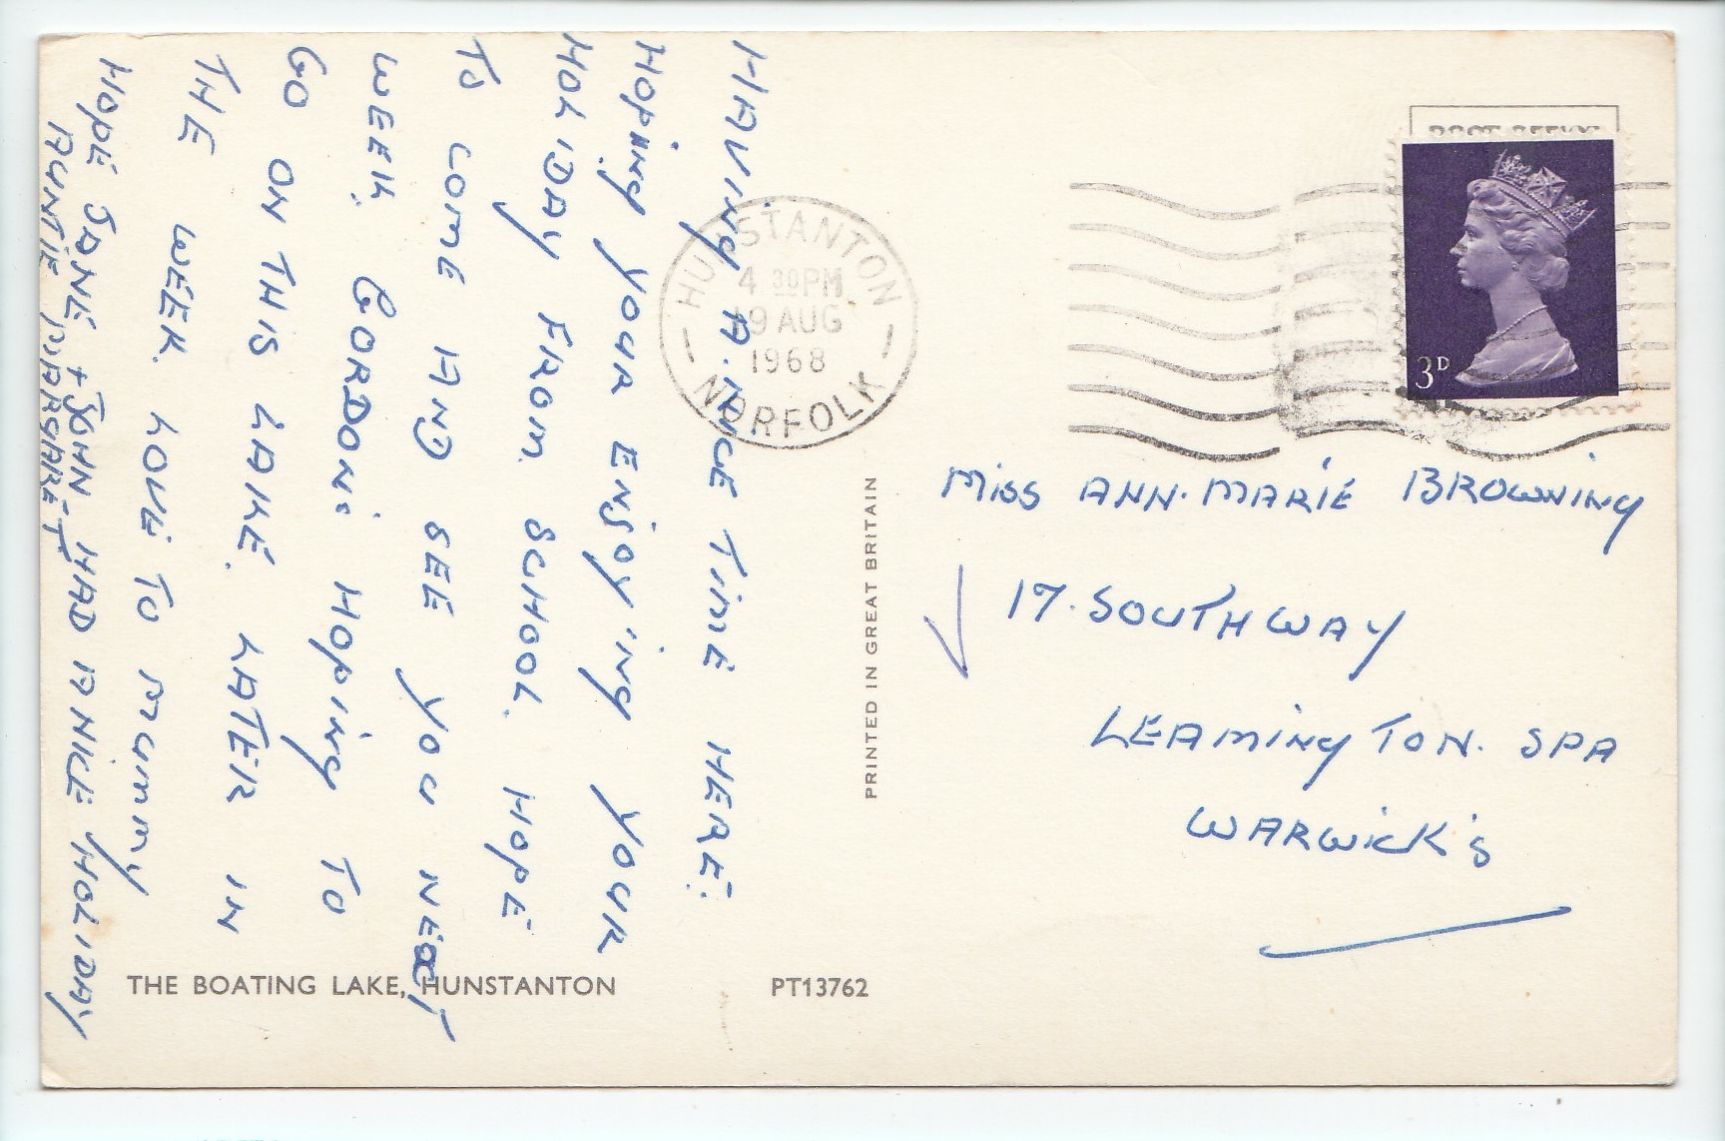 HAVING A. NICE TIME HERE.
HOPING YOUR ENJOY'ING YOUR
HOLIDAY FROM SCHOOL. HOPE
TO COME AND SEE YOU NEXT
WEEK. GORDON: HOPING TO
GO ON THIS LAKE. LATER IN
THE WEEK. LOVE TO MUMMY
HOPE JANE + JOHN HAD A NICE HOLIDAY
AUNTIE MARGARET.
HUNSTANTON
4 30PM
19 AUG
1968
NORFOLK
3D
MISS ANN-MARIE BROWNING
17. SOUTHWAY
LEAMINGTON. SPA
WARWICK'S
PRINTED IN GREAT BRITAIN
THE BOATING LAKE, HUNSTANTON
PT13762